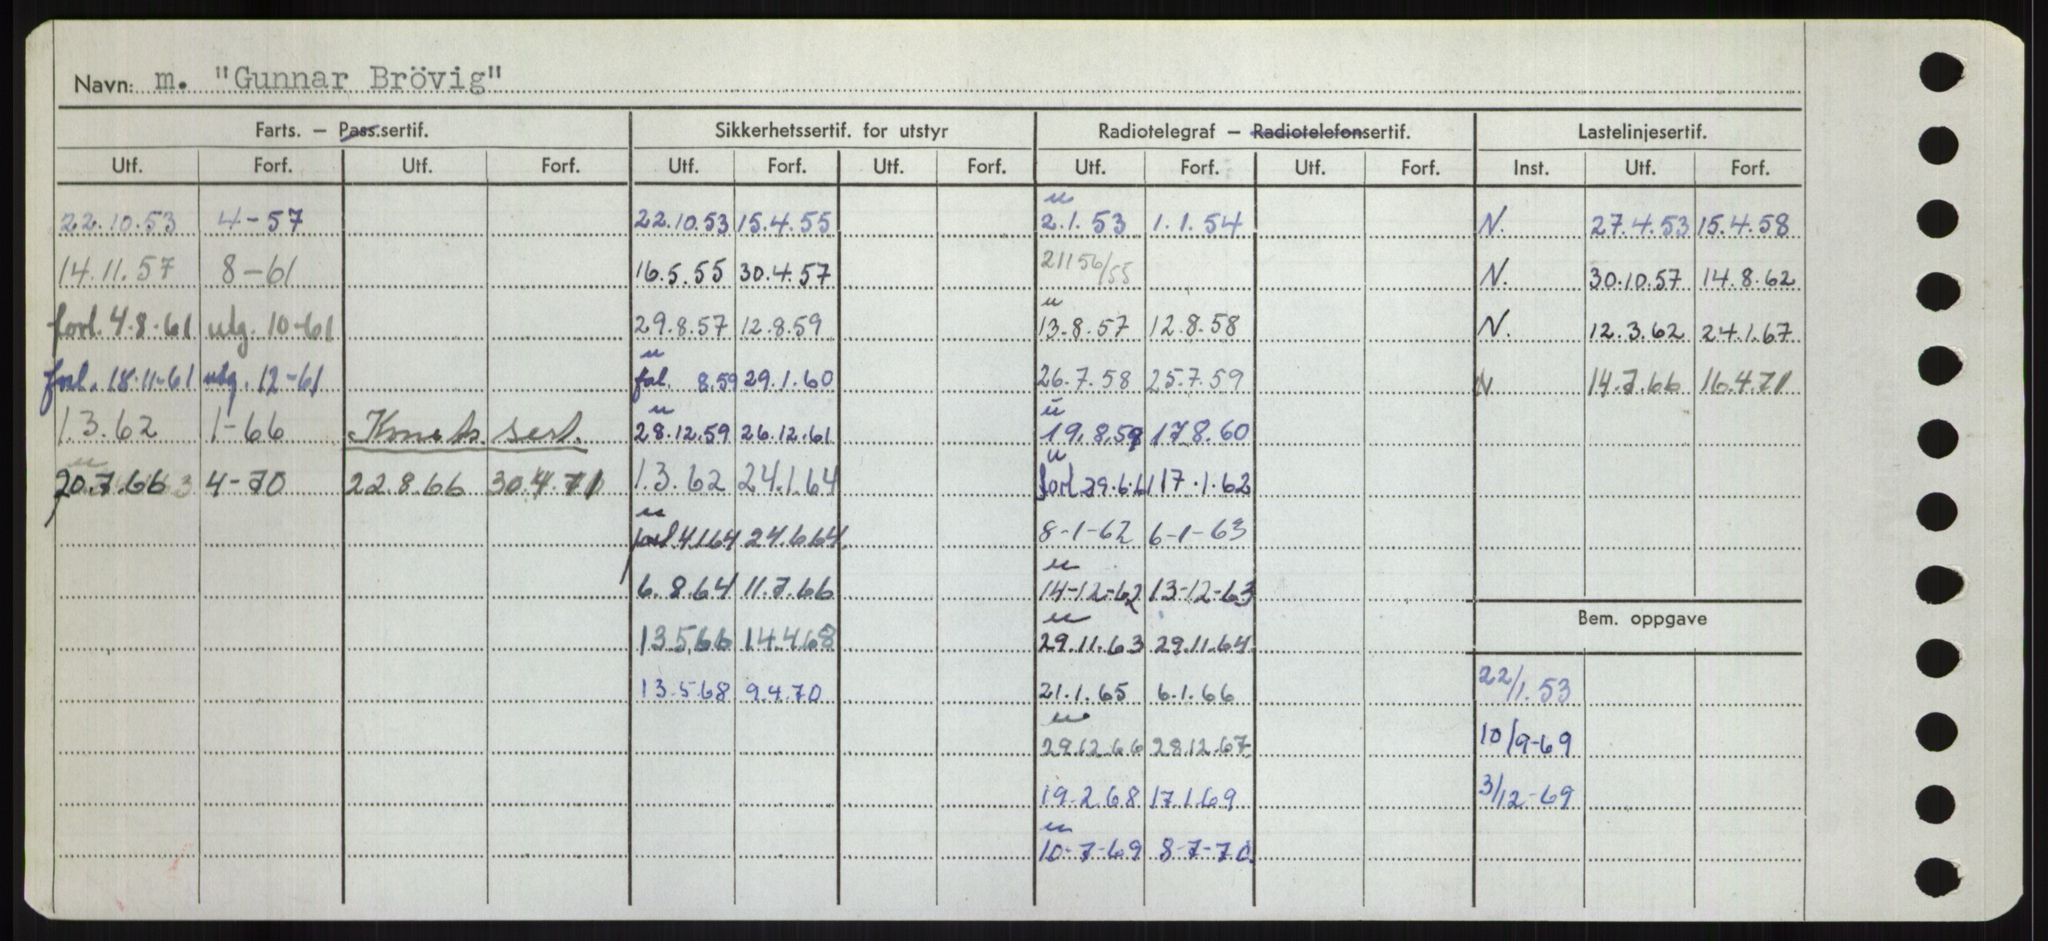 Navn: m. "Gunnar Brövig"
Farts. – Pass.sertif. Sikkerhetssertif. for utstyr Radiotelegraf – Radiotelefonsertif. Lastelinjesertif.
Utf. Forf. Utf. Forf. Utf. Forf. Utf. Forf. Utf. Forf. Utf. Forf. Inst. Utf. Forf.
u
22.10.53 4-57 22.10.53 15.4.55 2.1.53 1.1.54 N. 27.4.53 15.4.58
14.11.57 8-61 16.5.55 30.4.57 21156/55 N. 30.10.57 14.8.62
u
forl. 4.8-61 utg. 10-61 29.8.57 12.8.59 13.8.57 12.8.58 N. 12.3.62 24.1.67
u
forl. 18.11-61 utg. 12-61 fol. 8.59 29.1.60 26.7.58 25.7.59 N 14.7.66 16.4.71
u u
1.3.62 1-66 Konst. sert. 28.12.59 26.12.61 19.8.59 17.8.60
u u
20.7.66 4-70 22.8.66 30.4.71 1.3.62 24.1.64 forl 29.6.61 17.1.62
u
forl 4.1.64 24.6.64 8-1-62 6-1-63
u
6.8.64 11.7.66 14-12-62 13-12-63
Bem. oppgave
u
13.5.66 14.4.68 29.11.63 29.11.64
13.5.68 9.4.70 21.1.65 6.1.66 22/1.53
u
29.12.66 28.12.67 10/9-69
19.2.68 17.1.69 3/12-69
u
10-7-69 8-7-70